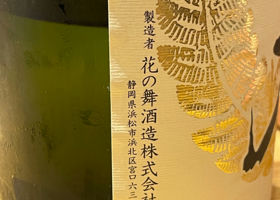 製造者
花の舞酒造株式会社
静岡県浜松市浜北区宮口六三